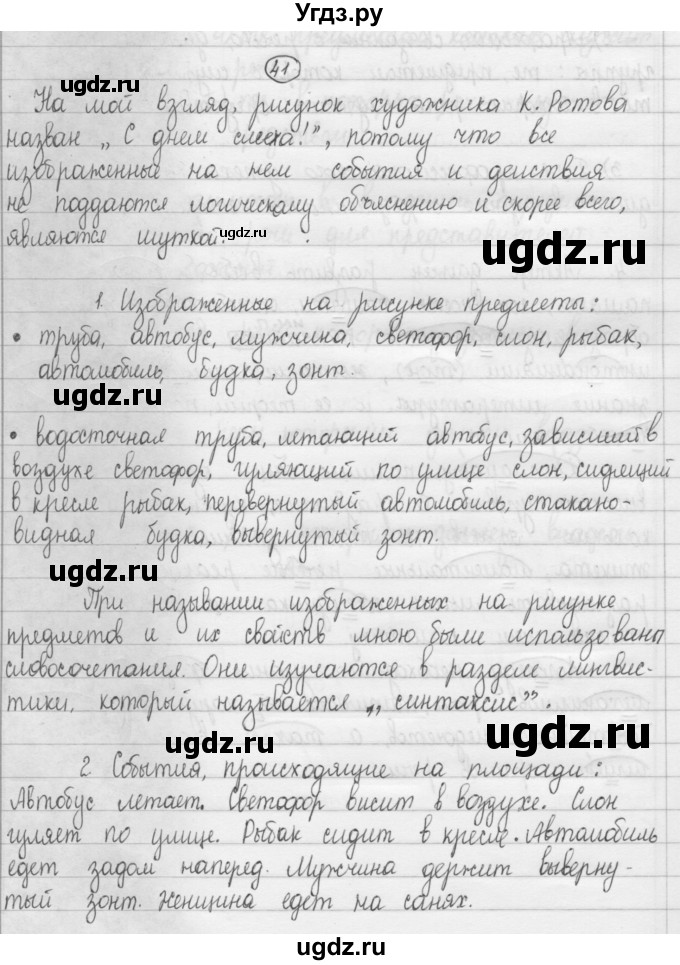 Угдз.ру
41
На мой взгляд, рисунок художника К. Ротова
назван „С днем смеха!", потому что все
изображенные на нем события и действия
не поддаются логическому объяснению и скорее всего,
являются шуткой.
1. Изображенные на рисунке предметы:
• труба, автобус, мужчина, светофор, слон, рыбак,
автомобиль, будка, зонт.
• водосточная труба, летающий автобус, зависший в
воздухе светофор, гуляющий по улице слон, сидящий
в кресле рыбак, перевернутый автомобиль, стакано-
видная будка, вывернутый зонт.
При назывании изображенных на рисунке
предметов и их свойств мною были использованы
словосочетания. Они изучаются в разделе лингвис-
тики, который называется „синтаксис".
2. События, происходящие на площади:
Автобус летает. Светофор висит в воздухе. Слон
гуляет по улице. Рыбак сидит в кресле. Автомобиль
едет задом наперед. Мужчина держит выверну-
тый зонт. Женщина едет на санях.
ugdz.ru
ugdz.ru
ugdz.ru
ugdz.ru
ugdz.ru
ugdz.ru
ugdz.ru
ugdz.ru
ugdz.ru
ugdz.ru
ugdz.ru